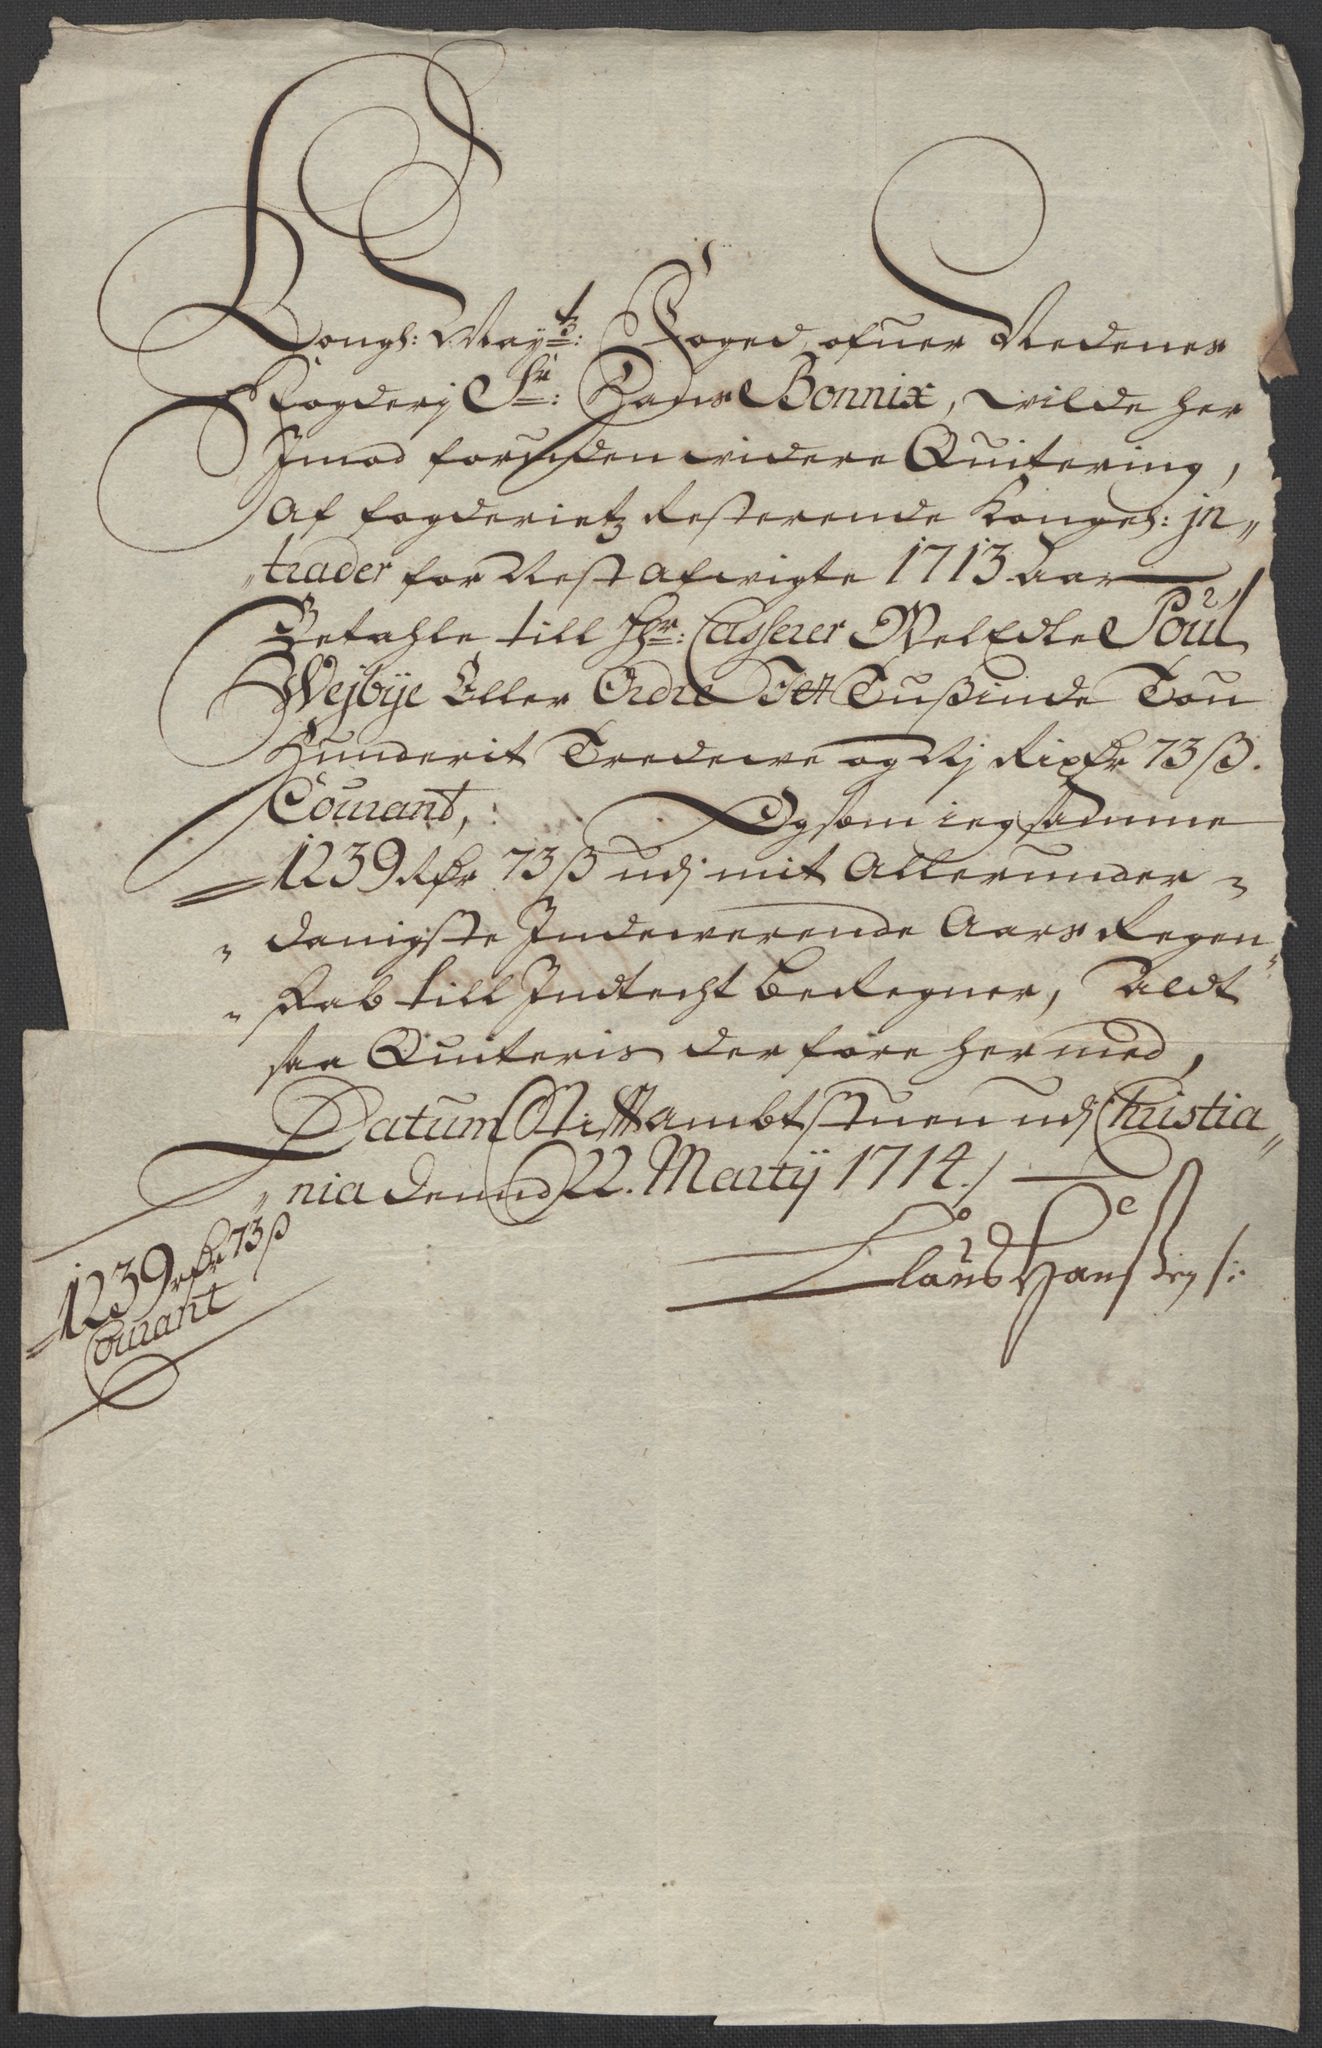 Kongl: Maytz: Foged ofuer Nedenes
Fogderj Sr: Hans Bonnix, wilde her
Jmod foruden widere Quitering,
Af fogderietz Resterende Kongel: jn„
„trader for Nest afwigte 1713 Aar
Betahle till Hr: Casserer WelEdle Poul
Wejbye Eller Ordre Et Tußinde Tou
Hunderit Tredewe og Nj Rixdr 73 ß.
Courant, Og som ieg samme
1239 Rdr 73 ß udj mit Allerunder„
„danigste Indewerende Aars Regen„
„skab till Indtecht beregner, Aldt
saa Quiteris derfore hermed,
Datum Stifftambtstuen udj Christia„
„nia dennd 22. Martij 1714./
Claus Hanßen
1239 rdr 73 ß
Courant